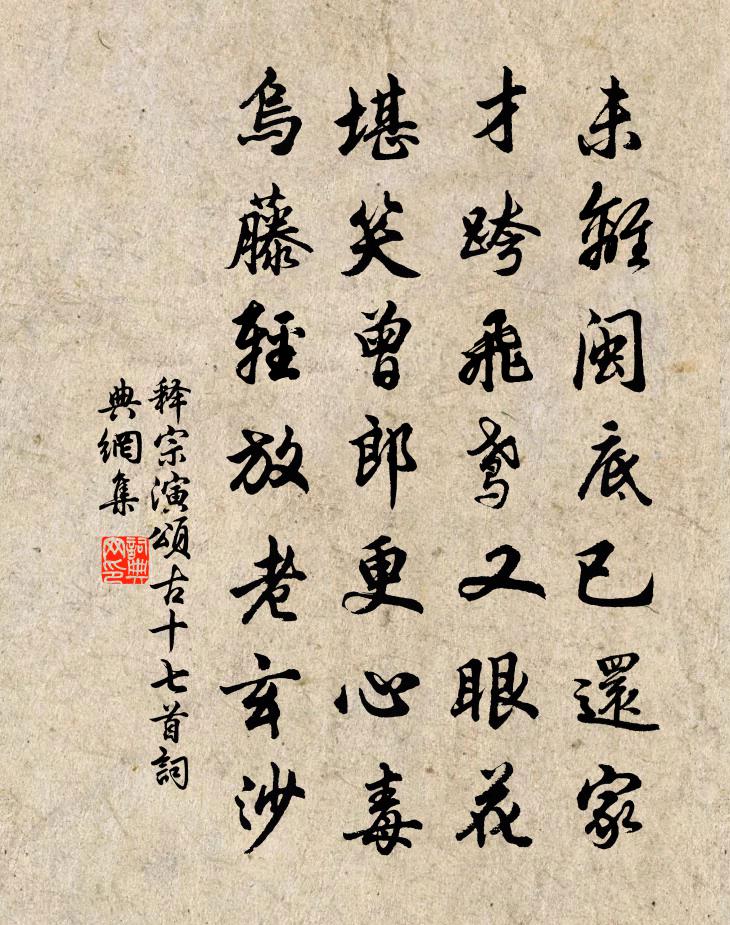 未離閩底已還家
才跨飛鸢又眼花
堪笑曾郎更心毒
烏藤輕放老玄沙
释宗演頌古十七首詞
典網集
詞典
网印